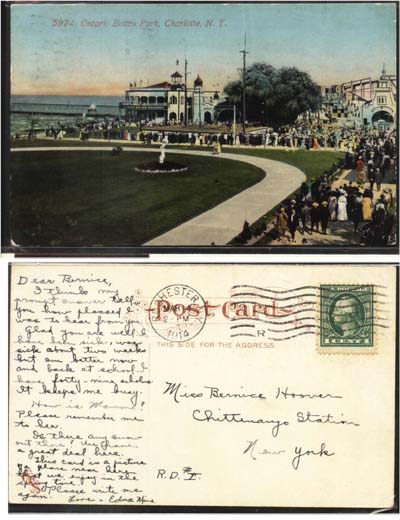 5974. Ontario Beach Park, Charlotte, N. Y.
Dear Bernice,
I think my
prompt answer tells
you how pleased I
was to hear from you.
Glad you are well. I
have been sick, was
sick about two weeks
but am better now
and back at school. I
have forty-nine scholars.
It keeps me busy.
How is Mamma?
Please remember me
to her.
Is there any snow
out there? We have
a great deal here.
This card is a picture
of place near here
that we enjoy in the
spring time.
Please write me
again. Love - Edna
CHESTER
N.Y.
1914
Post Card
THIS SIDE FOR THE ADDRESS
R
1 CENT 1
Miss Bernice Hoover
Chittenango Station
New York
R.D. #